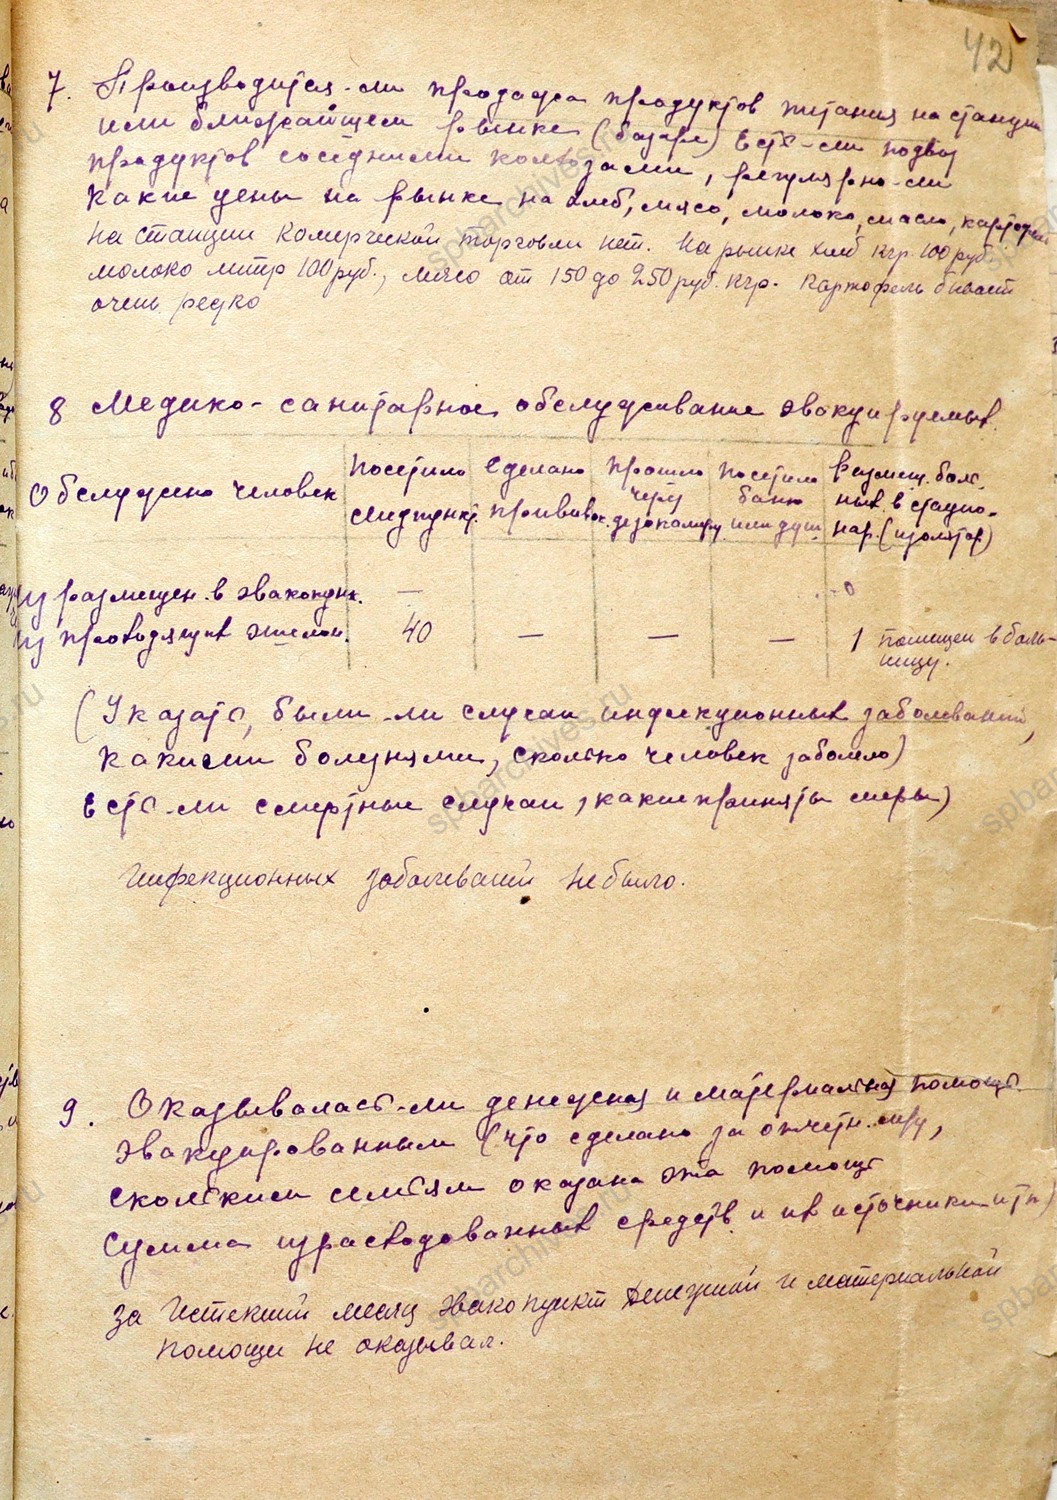 42
7. Производится-ли продажа продуктов питания на станции
или ближайшем рынке (базаре) есть-ли подвоз
продуктов соседними колхозами, регулярно-ли
какие цены на рынке на хлеб, мясо, молоко, масло, картофель
На станции комерческой торговли нет. На рынке хлеб кгр. 100 руб.
молоко литр 100 руб., мясо от 150 до 250 руб. кгр. Картофель бывает
очень редко
8 Медико-санитарное обслуживание эвакуируемых.
Обслужено человек | посетило медпункт. | сделано прививок. | прошло через дезокамеру | посетило баню или душ. | размещ. больных в стационар. (изолятор)
из размещен. в эвакопунк. — 0
из проходящих эшелон. 40 — — — 1 помещен в боль-
ницу.
(Указать, были-ли случаи инфекционных заболеваний,
какими болезнями, сколько человек заболело)
есть-ли смертные случаи, какие приняты меры)
Инфекционных заболеваний не было.
9. Оказывалась-ли денежная и материальная помощь
эвакуированным (что сделано за отчетн. мец,
скольким семьям оказана эта помощь
сумма израсходованных средств и их источники и тп)
За истекший месяц эвакопункт денежной и материальной
помощи не оказывал.
spbarchives.ru